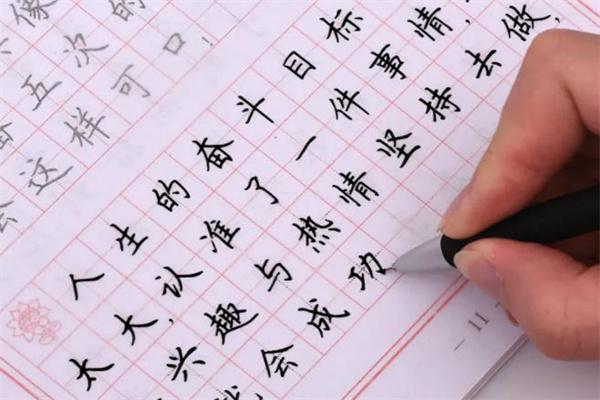 像
五次的
会这样可口!
人生的奋斗目标
太大,认准了一件事情,
兴趣与热情坚持去做,
就会成功
- 11 -